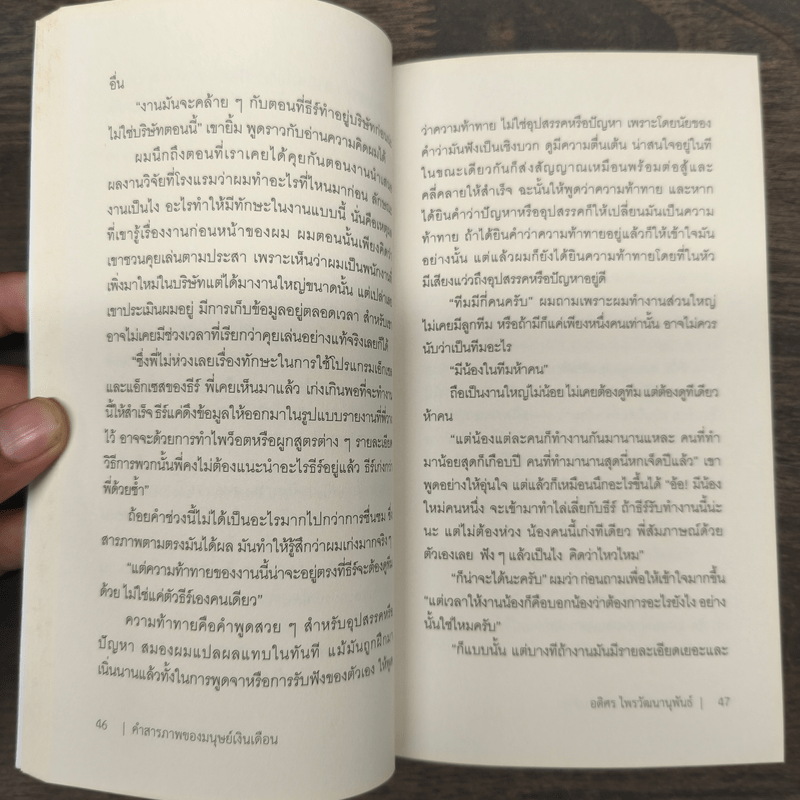 อื่น
"งานมันจะคล้าย ๆ กับตอนที่ธีร์ทำอยู่บริษัทก่อน
ไม่ใช่บริษัทตอนนี้" เขายิ้ม พูดราวกับอ่านความคิดผมได้
ผมนึกถึงตอนที่เราเคยได้คุยกันตอนงานนำเสนอ
ผลงานวิจัยที่โรงแรมว่าผมทำอะไรที่ไหนมาก่อน
งานเป็นไง อะไรทำให้มีทักษะในงานแบบนี้ นั่นคือเหตุผล
ที่เขารู้เรื่องงานก่อนหน้าของผม ผมตอนนั้นเพียงคิดว่า
เขาชวนคุยเล่นตามประสา เพราะเห็นว่าผมเป็นพนักงานที่
เพิ่งมาใหม่ในบริษัทแต่ได้มางานใหญ่ขนาดนั้น แต่เปล่าเลย
เขาประเมินผมอยู่ มีการเก็บข้อมูลอยู่ตลอดเวลา สำหรับเขา
อาจไม่เคยมีช่วงเวลาที่เรียกว่าคุยเล่นอย่างแท้จริงเลยก็ได้
"ซึ่งพี่ไม่ห่วงเลยเรื่องทักษะในการใช้โปรแกรมเอ็กเซล
และแอ็กเซสของธีร์ พี่เคยเห็นมาแล้ว เก่งเกินพอที่จะทำงาน
นี้ให้สำเร็จ ธีร์แค่ดึงข้อมูลให้ออกมาในรูปแบบรายงานที่พี่วาง
ไว้ อาจจะด้วยการทำไพว็อตหรือผูกสูตรต่าง ๆ รายละเอียด
วิธีการพวกนั้นพี่คงไม่ต้องแนะนำอะไรธีร์อยู่แล้ว ธีร์เก่งกว่า
พี่ด้วยซ้ำ"
ถ้อยคำช่วงนี้ไม่ได้เป็นอะไรมากไปกว่าการชื่นชม ซึ่ง
สารภาพตามตรงมันได้ผล มันทำให้รู้สึกว่าผมเก่งมากจริง ๆ
"แต่ความท้าทายของงานนี้น่าจะอยู่ตรงที่ธีร์จะต้องดูทีม
ด้วย ไม่ใช่แค่ตัวธีร์เองคนเดียว"
ความท้าทายคือคำพูดสวย ๆ สำหรับอุปสรรคหรือ
ปัญหา สมองผมแปลผลแทบในทันที แม้มันถูกฝึกมา
เนิ่นนานแล้วทั้งในการพูดจาหรือการรับฟังของตัวเอง ให้พูด
46 | คำสารภาพของมนุษย์เงินเดือน
ว่าความท้าทาย ไม่ใช่อุปสรรคหรือปัญหา เพราะโดยนัยของ
คำว่ามันฟังเป็นเชิงบวก ดูมีความตื่นเต้น น่าสนใจอยู่ในที
ในขณะเดียวกันก็ส่งสัญญาณเหมือนพร้อมต่อสู้และ
คลี่คลายให้สำเร็จ ฉะนั้นให้พูดว่าความท้าทาย และหาก
ได้ยินคำว่าปัญหาหรืออุปสรรคก็ให้เปลี่ยนมันเป็นความ
ท้าทาย ถ้าได้ยินคำว่าความท้าทายอยู่แล้วก็ให้เข้าใจมัน
อย่างนั้น แต่แล้วผมก็ยังได้ยินความท้าทายโดยที่ในหัว
มีเสียงแว่วถึงอุปสรรคหรือปัญหาอยู่ดี
"ทีมมีกี่คนครับ" ผมถามเพราะผมทำงานส่วนใหญ่
ไม่เคยมีลูกทีม หรือถ้ามีก็แค่เพียงหนึ่งคนเท่านั้น อาจไม่ควร
นับว่าเป็นทีมอะไร
"มีน้องในทีมห้าคน"
ถือเป็นงานใหญ่ไม่น้อย ไม่เคยต้องดูทีม แต่ต้องดูทีเดียว
ห้าคน
"แต่น้องแต่ละคนก็ทำงานกันมานานแหละ คนที่ทำ
มาน้อยสุดก็เกือบปี คนที่ทำมานานสุดนี่หกเจ็ดปีแล้ว" เขา
พูดอย่างให้อุ่นใจ แต่แล้วก็เหมือนนึกอะไรขึ้นได้ "อ้อ! มีน้อง
ใหม่คนหนึ่ง จะเข้ามาทำไล่เลี่ยกับธีร์ ถ้าธีร์รับทำงานนี้น่ะ
นะ แต่ไม่ต้องห่วง น้องคนนี้เก่งทีเดียว พี่สัมภาษณ์ด้วย
ตัวเองเลย ฟัง ๆ แล้วเป็นไง คิดว่าไหวไหม"
"ก็น่าจะได้นะครับ" ผมว่า ก่อนถามเพื่อให้เข้าใจมากขึ้น
"แต่เวลาให้งานน้องก็คือบอกน้องว่าต้องการอะไรยังไง อย่าง
นั้นใช่ไหมครับ"
"ก็แบบนั้น แต่บางทีถ้างานมันมีรายละเอียดเยอะและ
อติศร ไพรวัฒนานุพันธ์ | 47